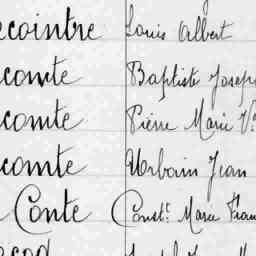 ecointre Louis Albert
comte Baptiste Joseph
comte Pierre Marie V
comte Urbain Jean
Conte Const. Marie Fran